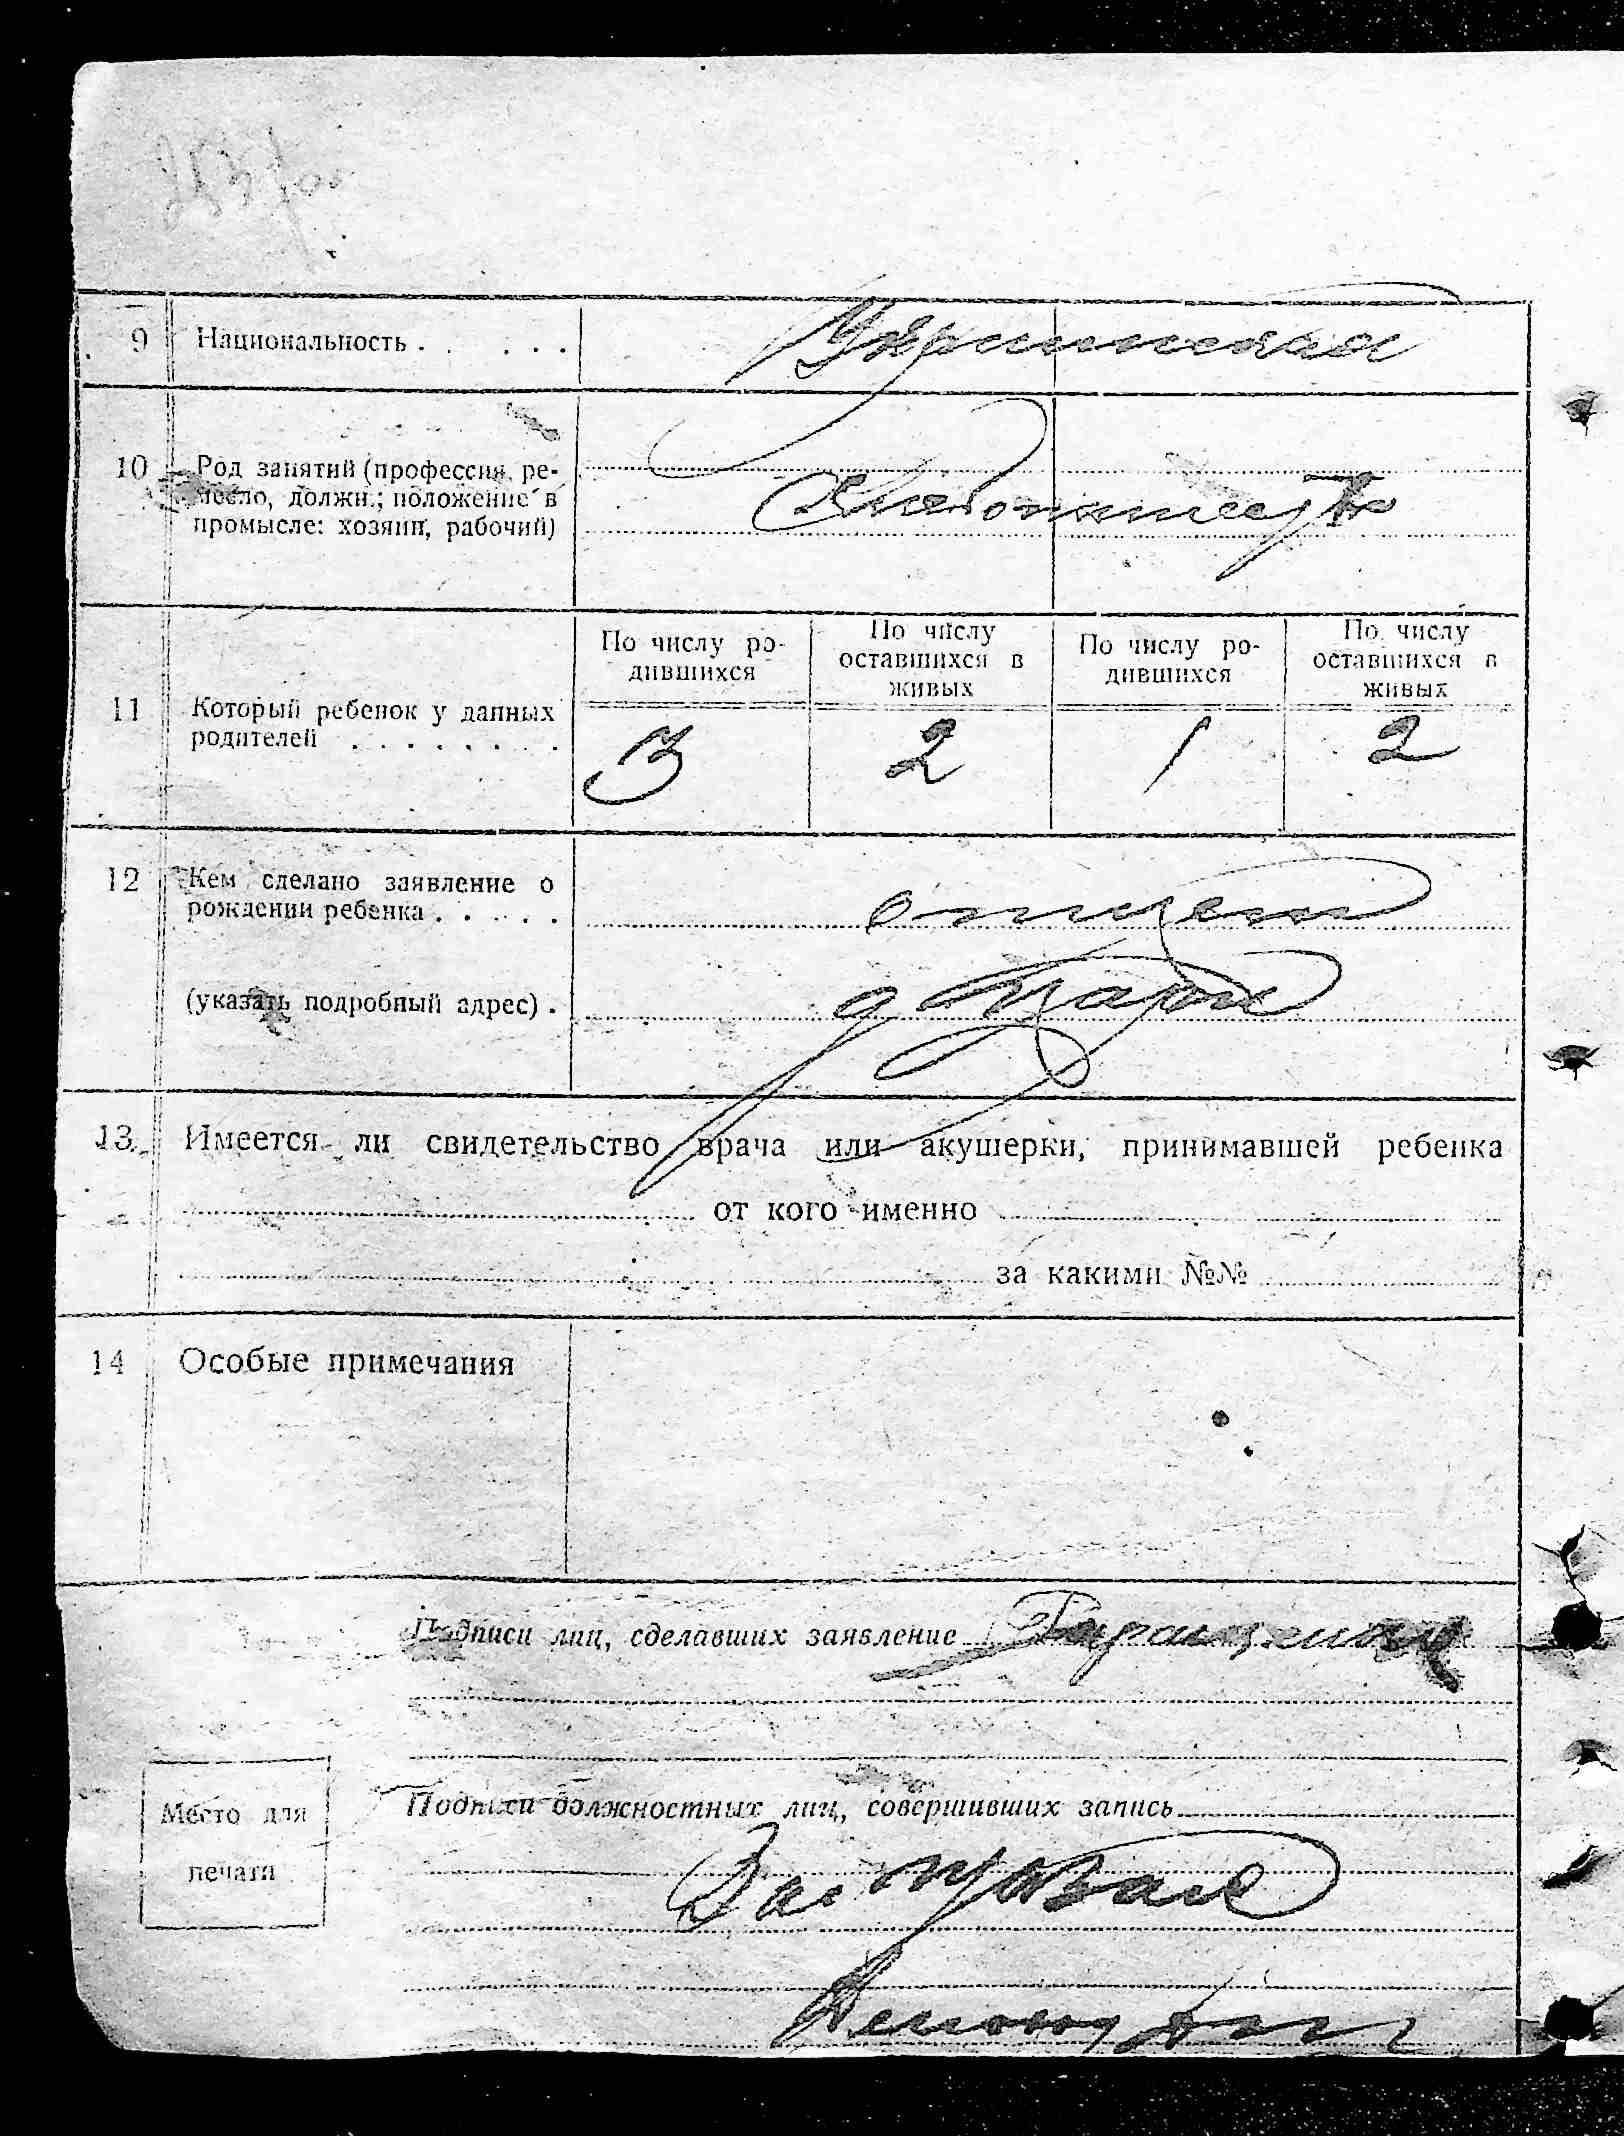 9 Национальность . . . . . . Украинская
10 Род занятий (профессия, ре-
месло, должн.; положение в
промысле: хозяин, рабочий)
Хлебопашец
11 Который ребенок у данных
родителей . . . . . . . .
По числу ро-
дившихся
По числу
оставшихся в
живых
По числу ро-
дившихся
По числу
оставшихся в
живых
3 2 1 2
12 Кем сделано заявление о
рождении ребенка . . . . . отцем
(указать подробный адрес) .
13 Имеется ли свидетельство врача или акушерки, принимавшей ребенка
от кого именно
за какими №№
14 Особые примечания
Подписи лиц, сделавших заявление
Место для
печати
Подписи должностных лиц, совершивших запись